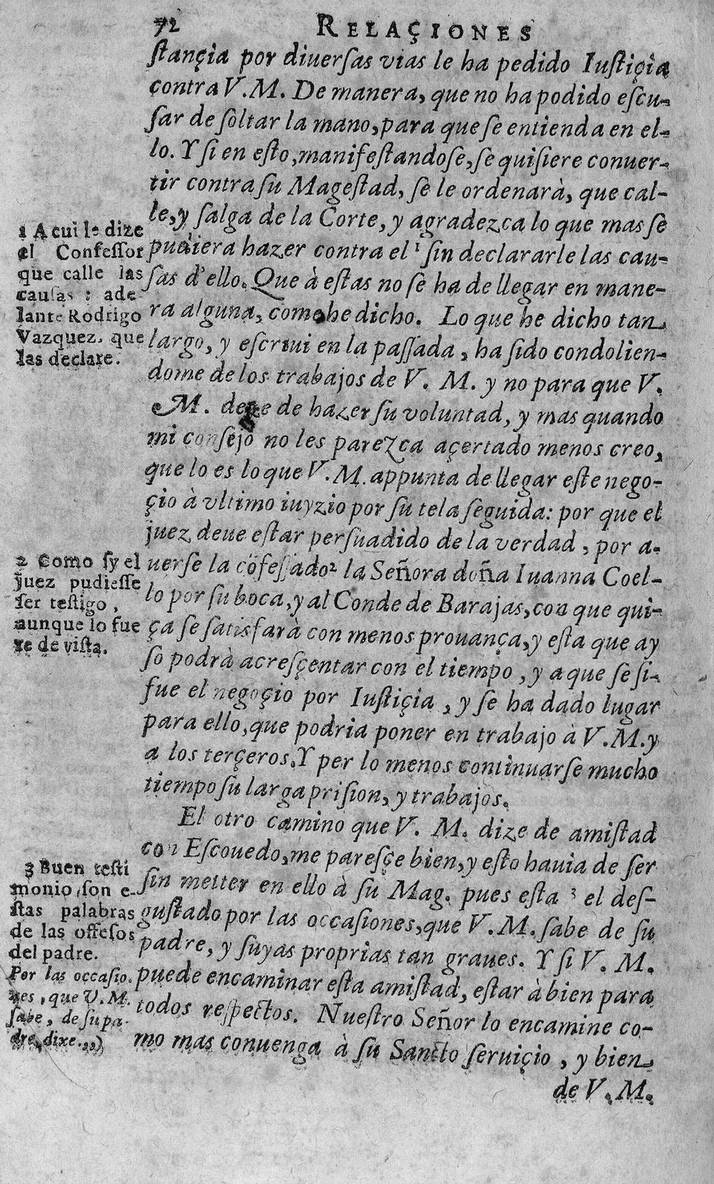 72 RELAÇIONES
stançia por diuersas vias le ha pedido Iustiçia
contra V.M. De manera, que no ha podido escu-
sar de soltar la mano, para que se entienda en el-
lo. Y si en esto, manifestandose, se quisiere conuer-
tir contra su Magestad, se le ordenarà, que cal-
le, y salga de la Corte, y agradezca lo que mas se
pudiera hazer contra el ¹ sin declararle las cau-
sas d'ello. Que à estas no se ha de llegar en mane-
ra alguna, como he dicho. Lo que he dicho tan
largo, y escriui en la passada, ha sido condolien-
dome de los trabajos de V. M. y no para que V.
M. dexe de hazer su voluntad, y mas quando
mi consejo no les parezca açertado menos creo,
que lo es lo que V.M. appunta de llegar este nego-
çio à vltimo iuyzio por su tela seguida: por que el
juez deue estar persuadido de la verdad, por a-
uerse la cõfessado² la Señora doña Iuanna Coel-
lo por su boca, y al Conde de Barajas, con que qui-
ça se satisfarà con menos prouança, y esta que ay
so podrà acresçentar con el tiempo, y a que se si-
fue el negoçio por Iustiçia, y se ha dado lugar
para ello, que podria poner en trabajo à V.M. y
a los terçeros. Y per lo menos continuarse mucho
tiempo su larga prision, y trabajos.
El otro camino que V. M. dize de amistad
con Escouedo, me paresçe bien, y esto hauia de ser
sin metter en ello à su Mag. pues esta ³ el des-
gustado por las occasiones, que V.M. sabe de su
padre, y suyas proprias tan graues. Y si V. M.
puede encaminar esta amistad, estar à bien para
todos respectos. Nuestro Señor lo encamine co-
mo mas conuenga à su Sancto seruiçio, y bien
de V. M.
1 A cui le dize
el Confessor
que calle las
causas: ade
lante Rodrigo
Vazquez, que
las declare.
2 Como sy el
juez pudiesse
ser testigo,
aunque lo fue
re de vista.
3 Buen testi
monio, son e-
stas palabras
de las offesos
del padre.
Por las occasio.
nes, que V. M.
sabe, de su pa-
dre, dixe.,,)